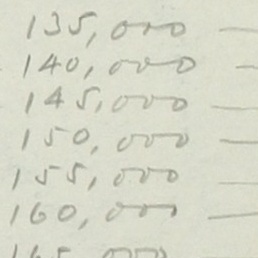 135,000 —
140,000 —
145,000 —
150,000 —
155,000 —
160,000 —
165,000